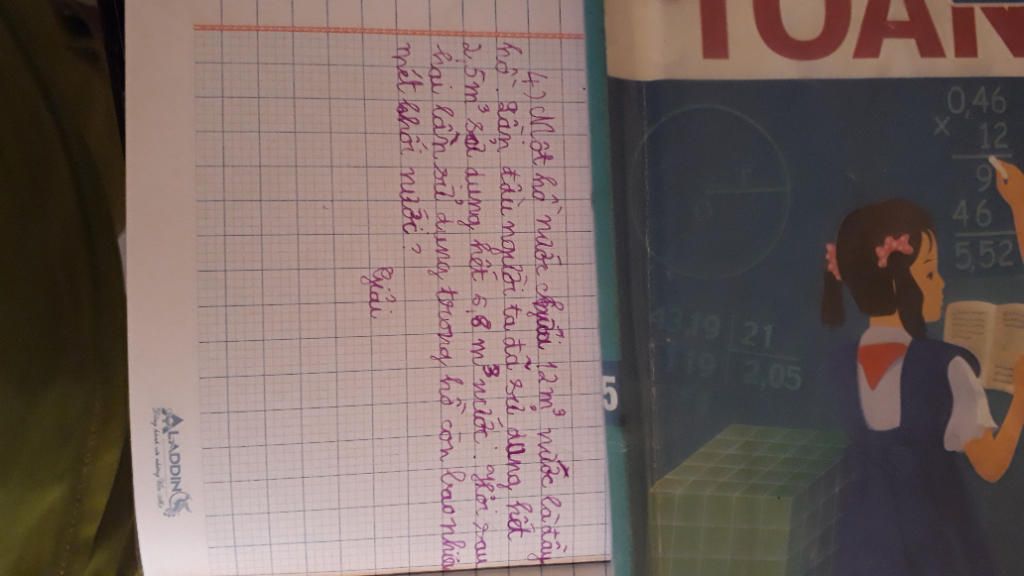 4.) Một hồ nước chứa 12m³ nước là đầy
hồ. Lần đầu người ta đã sử dụng hết
2,5m³ sử dụng hết 6,8 m³ nước. Hỏi sau
hai lần sử dụng trong hồ còn bao nhiêu
mét khối nước?
Giải
ALADDIN
TOÁN
5
0,46
x
12
9
46
5,52
r
4319 21
119 2,05